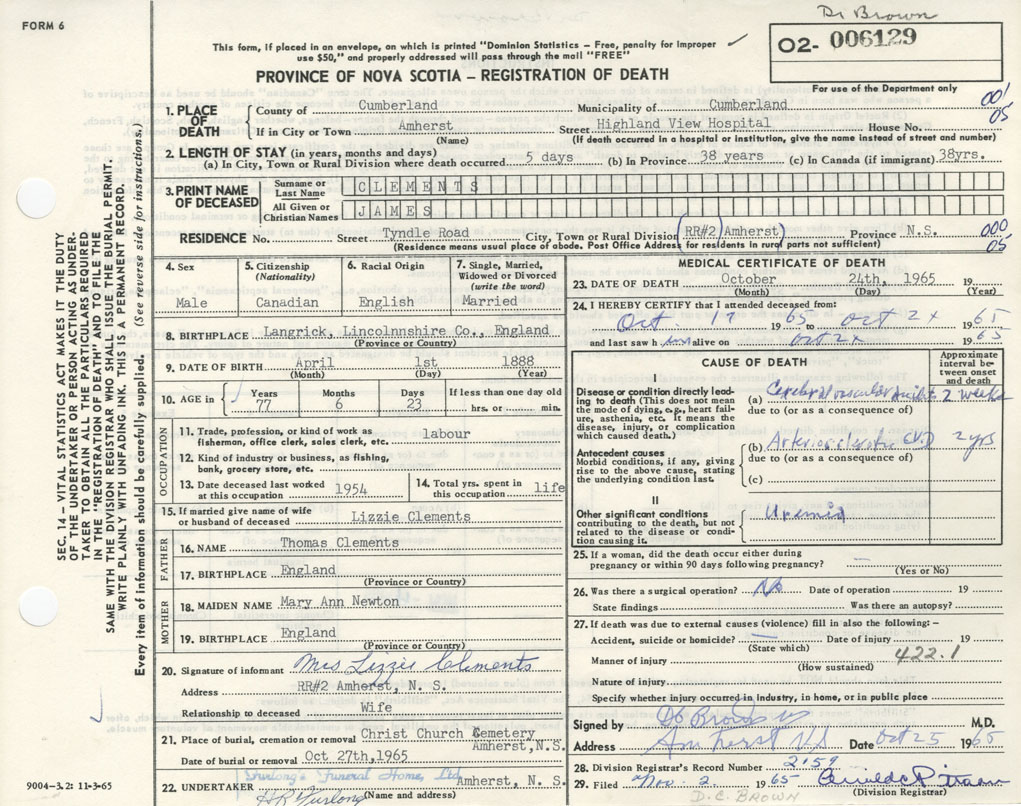 Dr Brown
FORM 6
This form, if placed in an envelope, on which is printed "Dominion Statistics – Free, penalty for improper
use $50," and properly addressed will pass through the mail "FREE"
02- 006129
PROVINCE OF NOVA SCOTIA – REGISTRATION OF DEATH
For use of the Department only
1. PLACE OF DEATH County of Cumberland Municipality of Cumberland 001
If in City or Town Amherst Street Highland View Hospital House No. 05
(Name) (If death occurred in a hospital or institution, give the name instead of street and number)
2. LENGTH OF STAY (in years, months and days)
(a) In City, Town or Rural Division where death occurred 5 days (b) In Province 38 years (c) In Canada (if immigrant) 38yrs.
3. PRINT NAME OF DECEASED Surname or Last Name CLEMENTS
All Given or Christian Names JAMES
RESIDENCE No. Street Tyndle Road City, Town or Rural Division (RR#2 Amherst) Province N.S. 000
(Residence means usual place of abode. Post Office Address for residents in rural parts not sufficient) 05
SEC. 14 – VITAL STATISTICS ACT MAKES IT THE DUTY
OF THE UNDERTAKER OR PERSON ACTING AS UNDER-
TAKER TO OBTAIN ALL THE PARTICULARS REQUIRED
IN THE "REGISTRATION OF DEATH" AND TO FILE THE
SAME WITH THE DIVISION REGISTRAR WHO SHALL ISSUE THE BURIAL PERMIT.
WRITE PLAINLY WITH UNFADING INK. THIS IS A PERMANENT RECORD.
Every item of information should be carefully supplied. (See reverse side for instructions.)
4. Sex
Male
5. Citizenship
(Nationality)
Canadian
6. Racial Origin
English
7. Single, Married,
Widowed or Divorced
(write the word)
Married
8. BIRTHPLACE Langrick, Lincolnnshire Co., England
(Province or Country)
9. DATE OF BIRTH April 1st 1888
(Month) (Day) (Year)
10. AGE in Years Months Days If less than one day old
77 6 23 hrs. or min.
OCCUPATION
11. Trade, profession, or kind of work as
fisherman, office clerk, sales clerk, etc. labour
12. Kind of industry or business, as fishing,
bank, grocery store, etc.
13. Date deceased last worked
at this occupation 1954
14. Total yrs. spent in
this occupation life
15. If married give name of wife
or husband of deceased Lizzie Clements
FATHER
16. NAME Thomas Clements
17. BIRTHPLACE England
(Province or Country)
MOTHER
18. MAIDEN NAME Mary Ann Newton
19. BIRTHPLACE England
(Province or Country)
20. Signature of informant Mrs Lizzie Clements
Address RR#2 Amherst, N. S.
Relationship to deceased Wife
21. Place of burial, cremation or removal Christ Church Cemetery
Amherst,N.S.
Date of burial or removal Oct 27th,1965
Furlong's Funeral Home, Ltd.
22. UNDERTAKER H R Furlong Amherst, N. S.
(Name and address)
9004-3.2: 11-3-65
MEDICAL CERTIFICATE OF DEATH
23. DATE OF DEATH October 24th, 1965 19
(Month) (Day) (Year)
24. I HEREBY CERTIFY that I attended deceased from:
Oct. 19 65 to Oct 24 1965
and last saw him alive on Oct 24 1965
CAUSE OF DEATH
Approximate
interval between
onset
and death
I
Disease or condition directly leading
to death (This does not mean
the mode of dying, e.g., heart failure,
asthenia, etc. It means the
disease, injury, or complication
which caused death.)
(a) Cerebral vascular accident 2 weeks
due to (or as a consequence of)
Antecedent causes
Morbid conditions, if any, giving
rise to the above cause, stating
the underlying condition last.
(b) Arteriosclerotic CVD 2 yrs
due to (or as a consequence of)
(c)
II
Other significant conditions
contributing to the death, but not
related to the disease or condi-
tion causing it.
Uremia
25. If a woman, did the death occur either during
pregnancy or within 90 days following pregnancy?
(Yes or No)
26. Was there a surgical operation? No Date of operation 19
State findings Was there an autopsy?
27. If death was due to external causes (violence) fill in also the following:–
Accident, suicide or homicide? Date of injury 19
(State which)
422.1
Manner of injury
(How sustained)
Nature of injury
Specify whether injury occurred in industry, in home, or in public place
Signed by DC Brown M.D.
Address Amherst NS Date Oct 25 1965
28. Division Registrar's Record Number 2159
29. Filed Nov. 2 1965
(Division Registrar)
D.C. BROWN